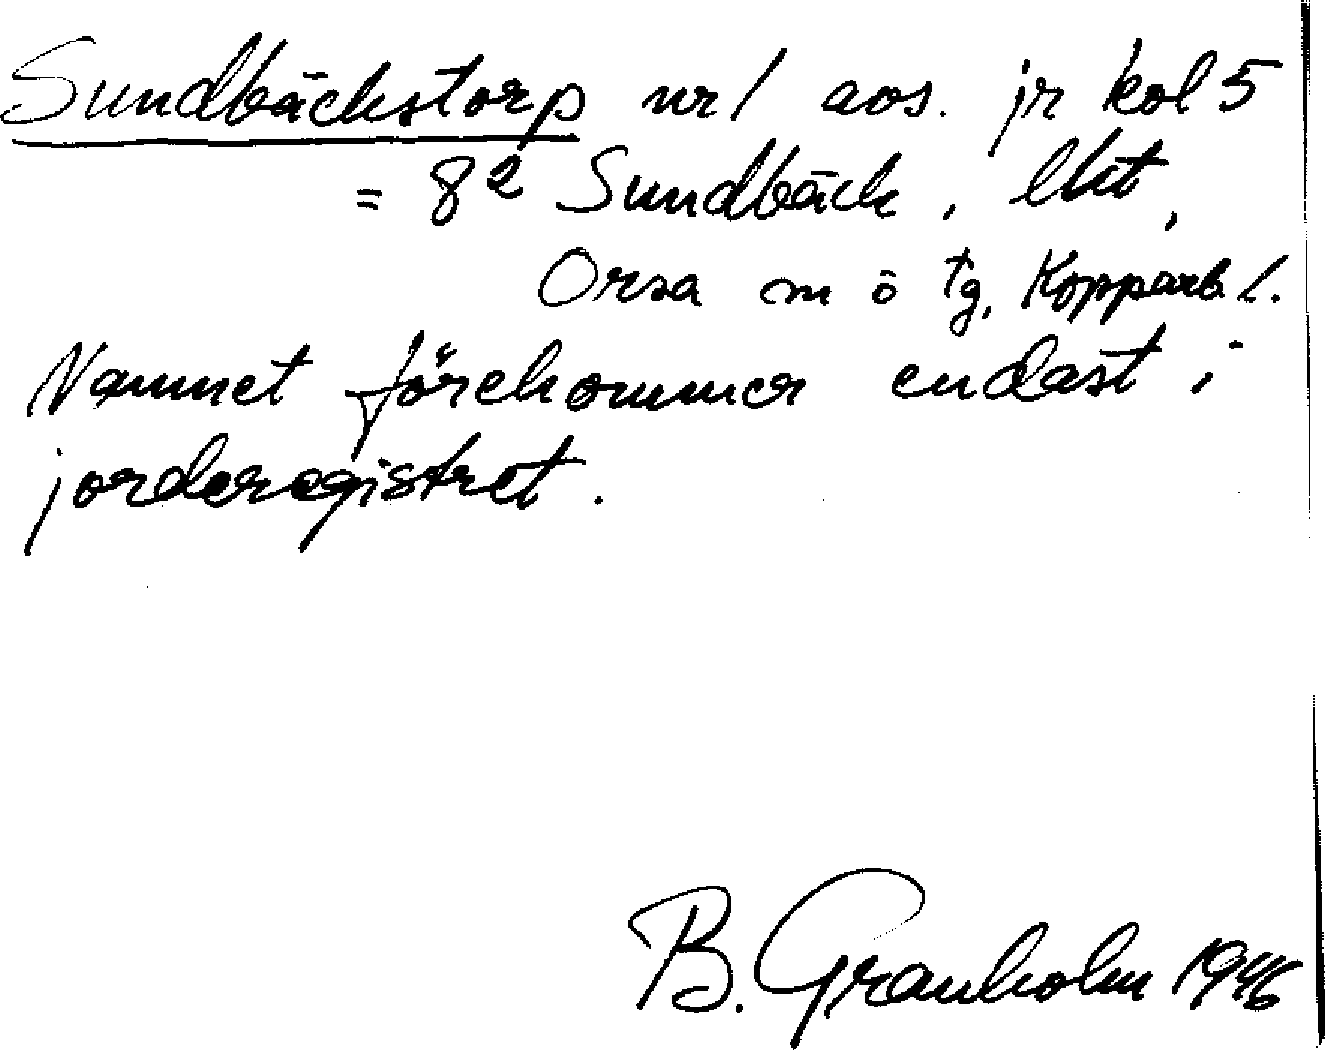 Sundbäckstorp nr 1 aos. jr kol 5
= 8² Sundbäck, lht,
Orsa m ö tg, Kopparb. l.
Namnet förekommer endast i
jorderegistret.
B. Granholm 1946